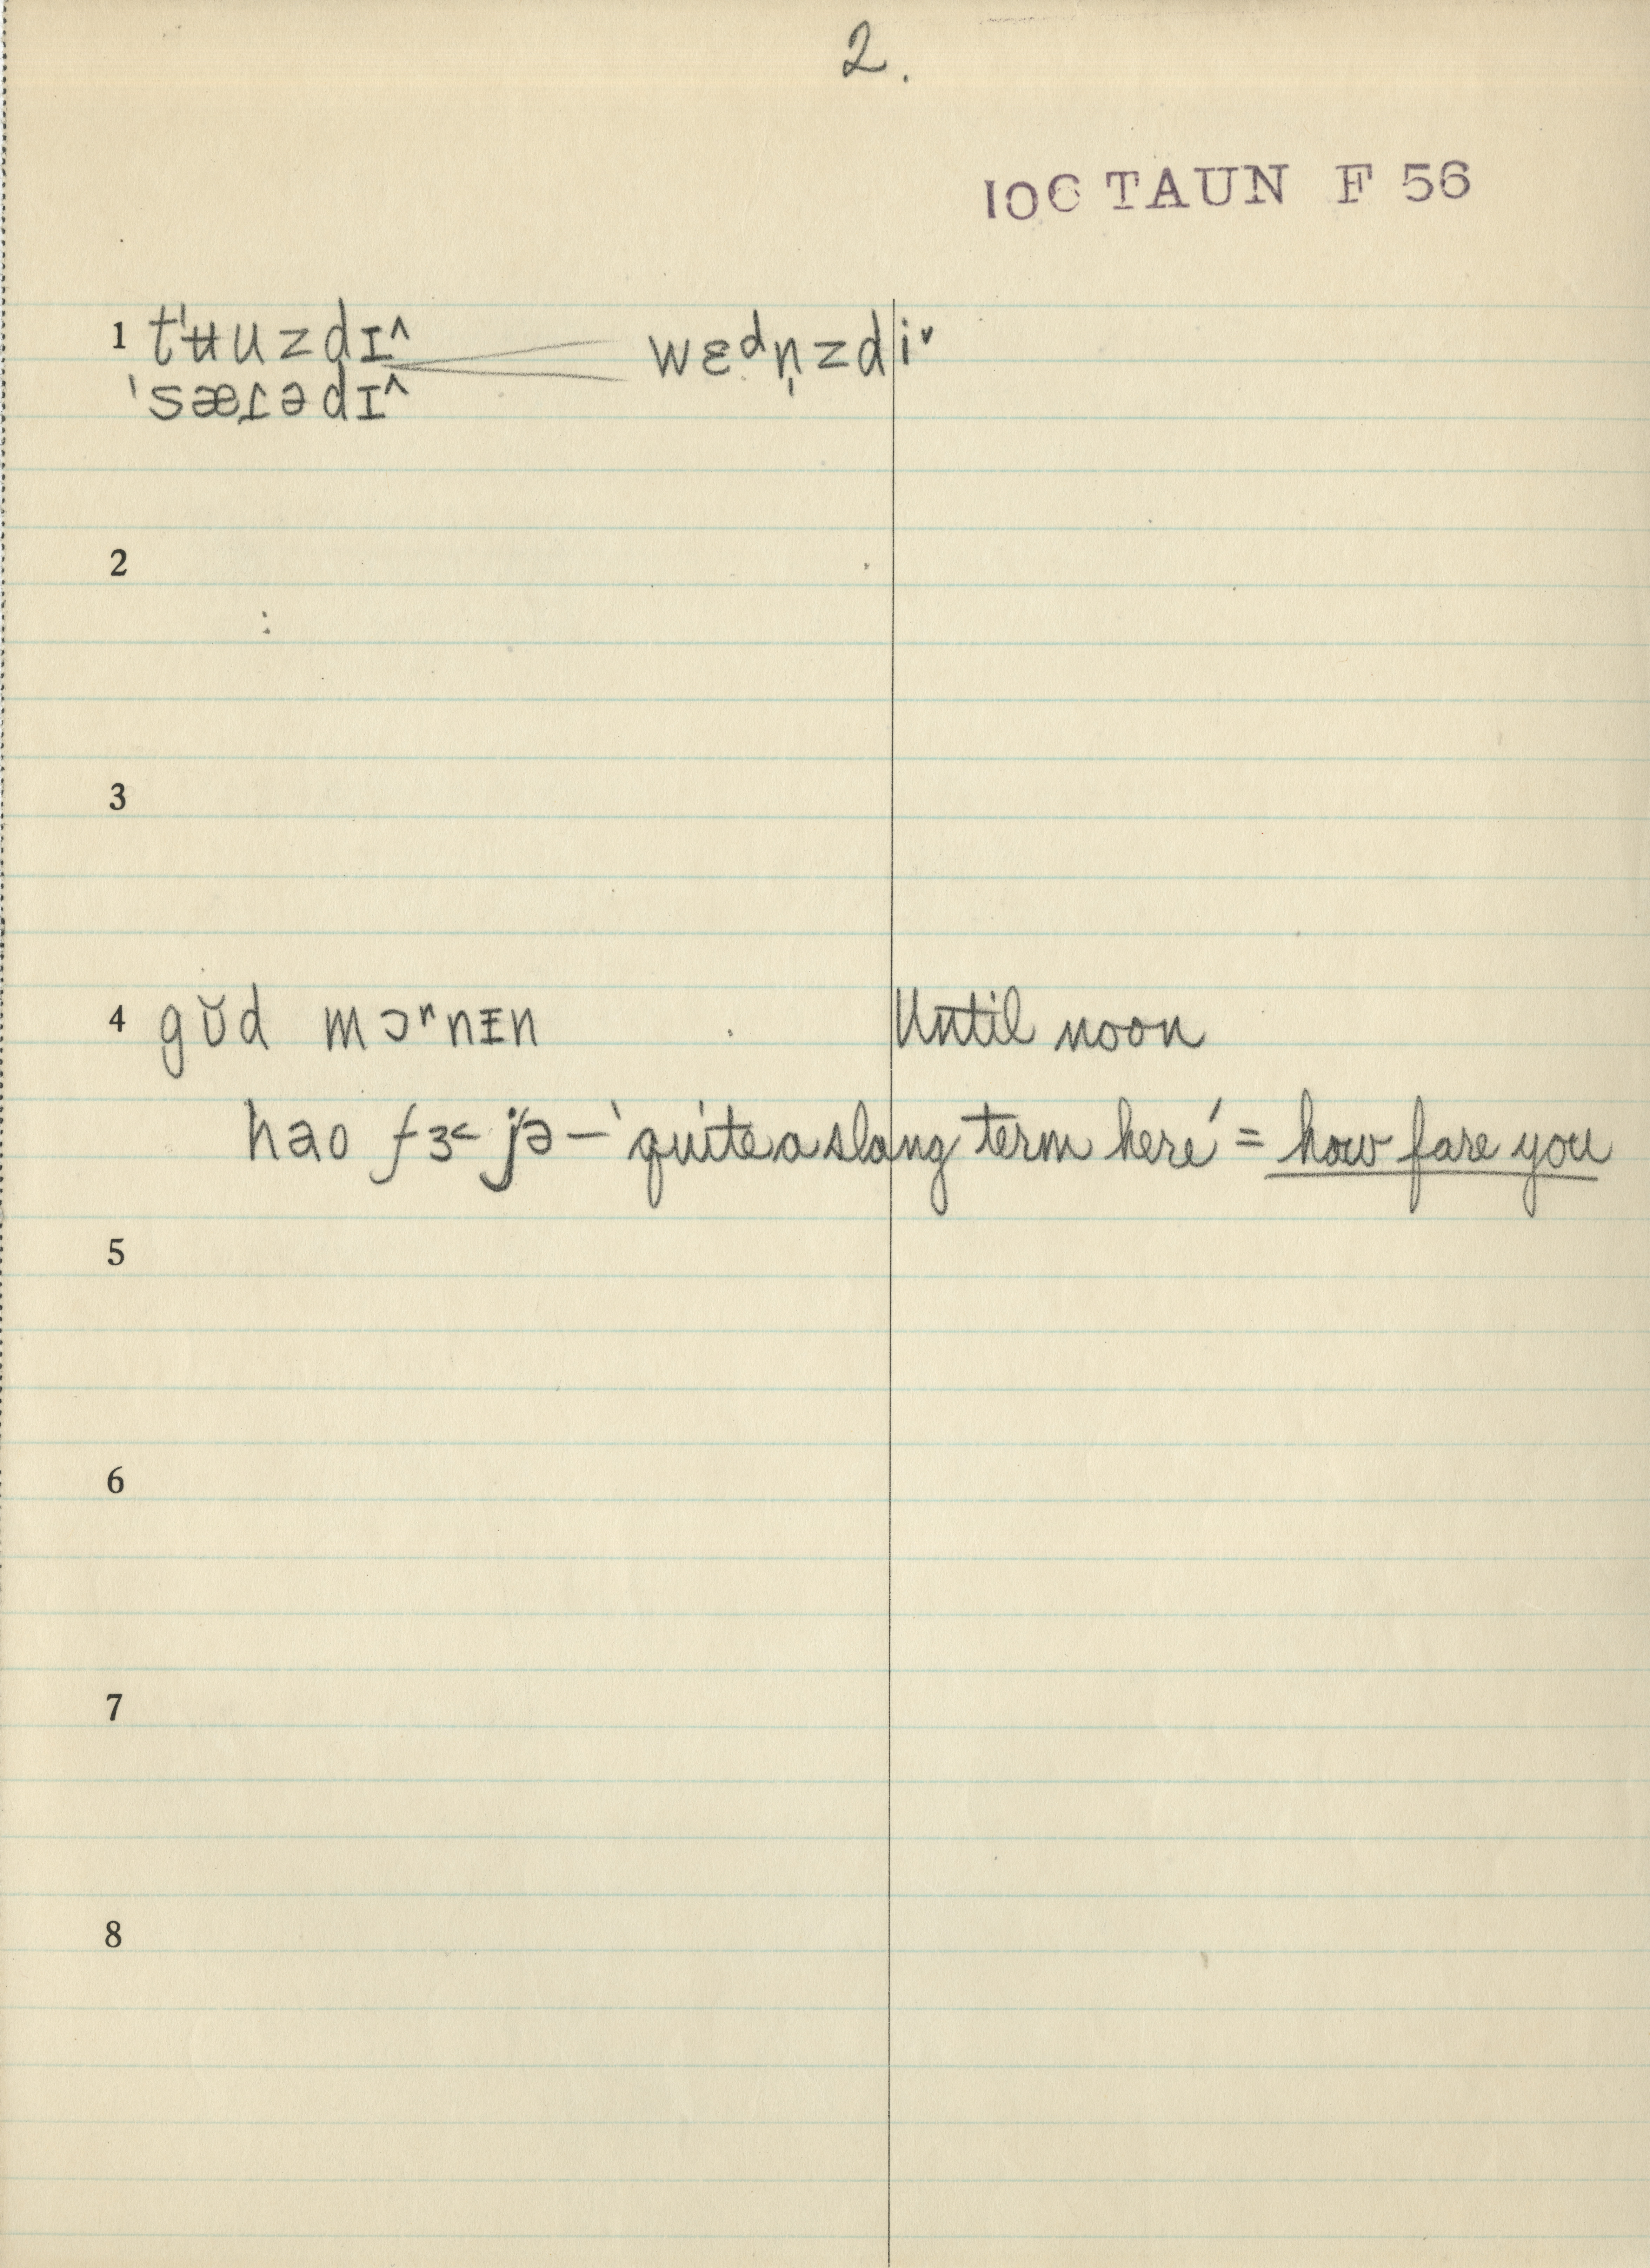 2.
100 TAUN F 56
1 t'ʉuzdɪ^ wɛᵈn̩zdi˅
'sæɾədɪ^
2
3
4 gŭd mɔʳnɪ̵n Until noon
hao fɜ˂ jə – 'quite a slang term here' = how fare you
5
6
7
8